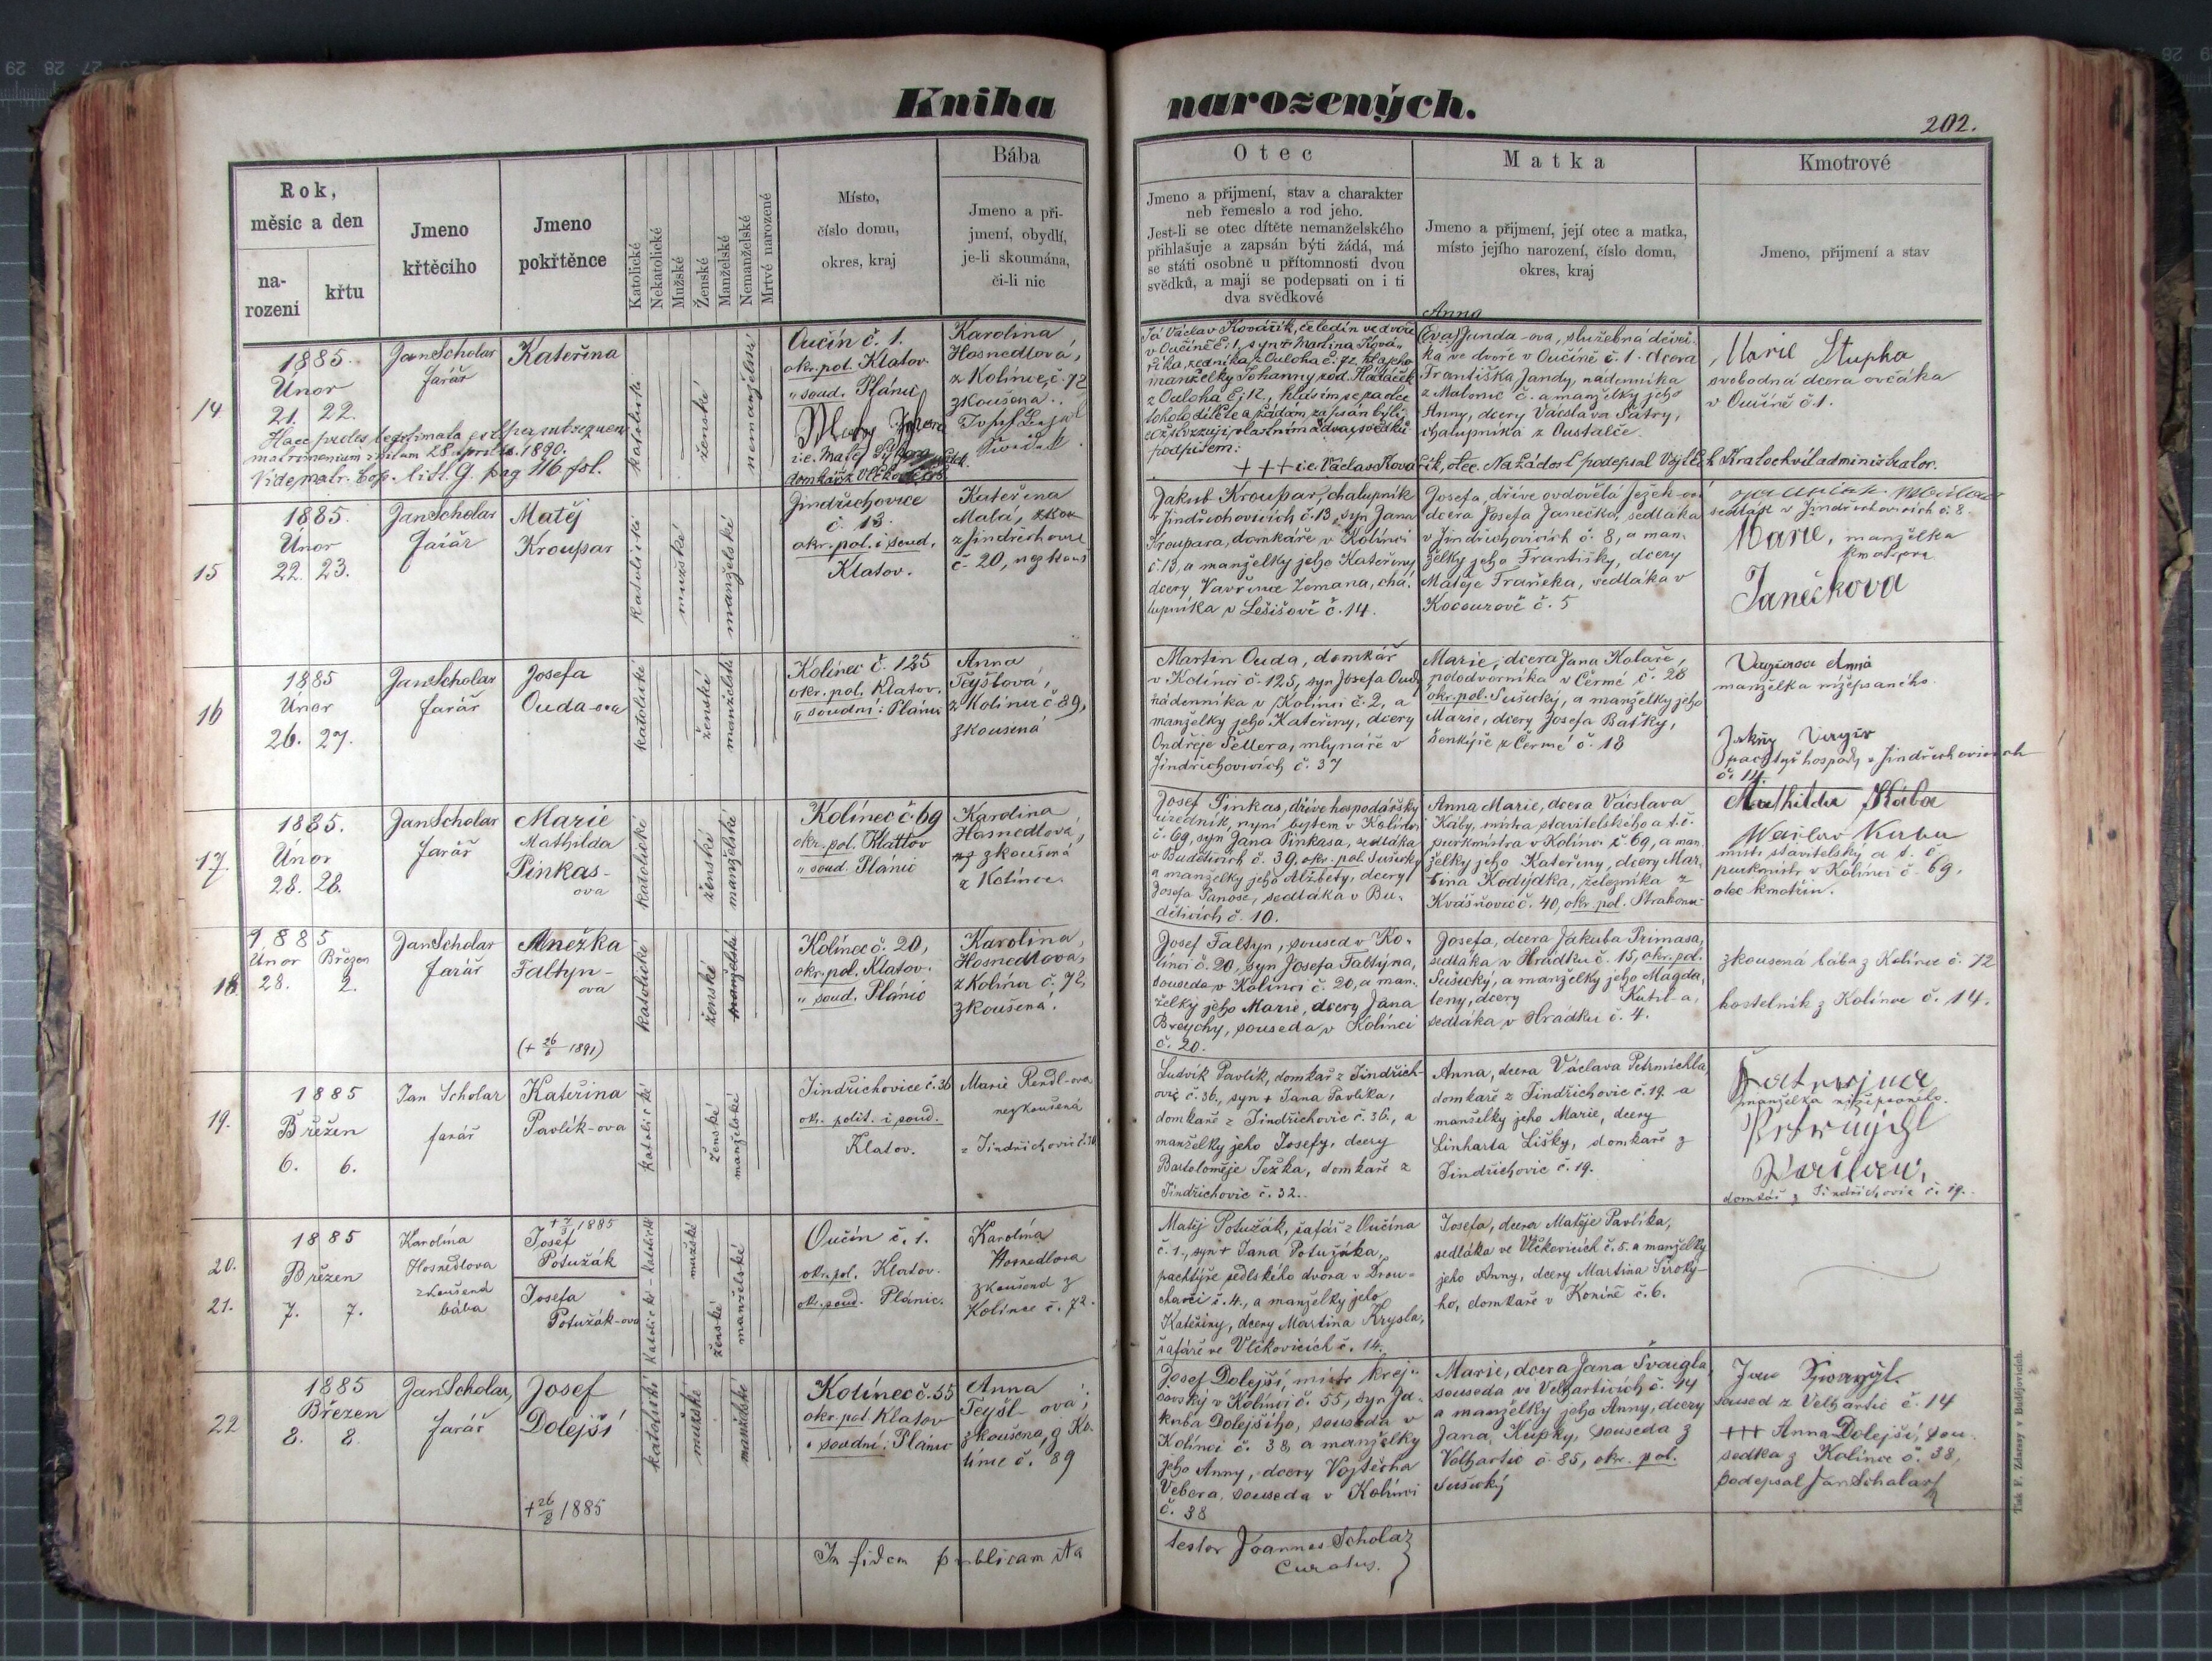 Kniha narozených.
202.
Rok,
měsíc a den
na-
rození
křtu
Jmeno
křtěcího
Jmeno
pokřtěnce
Katolické
Nekatolické
Mužské
Ženské
Manželské
Nemanželské
Mrtvé narozené
Místo,
číslo domu,
okres, kraj
Bába
Jmeno a při-
jmení, obydlí,
je-li skoumána,
či-li nic
Otec
Jmeno a přijmení, stav a charakter
neb řemeslo a rod jeho.
Jest-li se otec dítěte nemanželského
přihlašuje a zapsán býti žádá, má
se státi osobně u přítomnosti dvou
svědků, a mají se podepsati on i ti
dva svědkové
Matka
Jmeno a přijmení, její otec a matka,
místo jejího narození, číslo domu,
okres, kraj
Kmotrové
Jmeno, přijmení a stav
14.
1885.
Únor
21. 22.
Haec proles legitimata est per subsequens
matrimonium initum 28 aprilis 1890.
Vide matr. cop. litt. G. pag 116 fol.
Jan Scholar
farář
Kateřina
katolické
ženské
nemanželské
Oučín č. 1.
okr. pol. Klatov.
" soud. Plánic
i.e. Matěj
domkář z
Karolina
Hosnedlová,
z Kolince, č. 72
zkoušená.
Josef
Svědek
Já Václav Kovářík, čeledín ve dvoře
v Oučíně č. 1, syn + Martina Ková-
říka, zedníka, z Ouloha č. 72,
manželky Johanny rod.
z Ouloha č. 12, hlásím se za otce
tohoto dítěte a žádám, zapsán býti,
což stvrzuji vlastním a dvou svědků
podpisem:
+ + + i.e. Václav Kovařík, otec. Na žádost podepsal Vojtěch Kratochvíl administrator.
Anna
Eva Junda-ova, služebná děveč-
ka ve dvoře v Oučíně č. 1. dcera
Františka Jandy, nádenníka
z Malonic č. a manželky jeho
Anny, dcery Václava Šatry,
chalupníka z Oustalče.
Marie Stupka
svobodná dcera ovčáka
v Oučíně č 1.
15
1885.
Únor
22. 23.
Jan Scholar
farář
Matěj
Kroupar
katolické
mužské
manželské
Jindřichovice
č. 13.
okr. pol. i soud.
Klatov.
Kateřina
Malá,
z Jindřichovic
č. 20, nezkouš
Jakub Kroupar, chalupník
v Jindřichovicích č. 13, syn Jana
Kroupara, domkáře v Kolínci
č. 13, a manželky jeho Kateřiny,
dcery Vavřince Zemana, cha-
lupníka v Lešišově č. 14.
Josefa, dříve ovdovělá Ježek-ová
dcera Josefa Janečka, sedláka
v Jindřichovicích č. 8, a man-
želky jeho Františky, dcery
Matěje Franěka, sedláka v
Kocourově č. 5
sedlák v Jindřichovicích č. 8
Marie, manželka
kmotrova
Janečkova
16
1885
Únor
26. 27.
Jan Scholar
farář
Josefa
Ouda-ova
katolické
ženské
manželské
Kolinec č. 125
okr. pol. Klatov.
" soudní: Plánic
Anna
Teyštova,
z Kolince č 89,
zkoušená
Martin Ouda, domkář
v Kolínci č. 125, syn Josefa Oudy
nádenníka v Kolínci č. 2, a
manželky jeho Kateřiny, dcery
Ondřeje Šellera, mlynáře v
Jindřichovicích č. 37
Marie, dcera Jana Kolaře,
polodvorníka v Čermé č. 28
okr. pol. Sušický, a manželky jeho
Marie, dcery Josefa Baťky,
šenkýře z Čermé č. 18
Anna
manželka nížepsaného.
pachtýř hospody v Jindřichovicích
č. 14.
17.
1885.
Únor
28. 28.
Jan Scholar
farář
Marie
Mathilda
Pinkas-
ova
katolické
ženské
manželské
Kolínec č. 69
okr. pol. Klattov
" soud. Plánic
Karolina
Hosnedlová,
zkoušená
z Kolince
Josef Pinkas, dříve hospodářský
úředník, nyní bytem v Kolínci
č. 69, syn Jana Pinkasa, sedláka
v Budětících č. 39, okr. pol. Sušický
a manželky jeho Alžběty, dcery
Josefa Panose, sedláka v Bu-
děticích č. 10.
Anna Marie, dcera Václava
Káby, mistra stavitelského a t. č.
purkmistra v Kolínci č. 69, a man-
želky jeho Kateřiny, dcery Mar-
tina Kodýdka, železníka z
Kvášňovic č. 40, okr. pol. Strakonic
Mathilda Kába
Waclav Kaba
mistr stavitelský a t. č.
purkmistr v Kolínci č. 69,
otec kmotřin.
18
1885
Únor Březen
28. 2.
Jan Scholar
farář
Anežka
Faltyn-
ova
(+ 26/6 1891)
katolické
ženské
manželské
Kolínec č. 20,
okr. pol. Klatov.
" soud. Plánic
Karolina,
Hosnedlova,
z Kolince č. 72,
zkoušená.
Josef Faltyn, soused v Ko-
línci č. 20, syn Josefa Faltyna,
souseda v Kolínci č. 20, a man-
želky jeho Marie, dcery Jana
Breychy, souseda v Kolínci
č. 20.
Josefa, dcera Jakuba Primasa,
sedláka v Hrádku č. 15, okr. pol.
Sušický, a manželky jeho Magda-
leny, dcery
sedláka v Hrádku č. 4.
zkoušená bába z Kolince č. 72
kostelník z Kolince č. 14.
19.
1885
Březen
6. 6.
Jan Scholar
farář
Kateřina
Pavlík-ova
katolické
ženské
manželské
Jindřichovice č. 36
okr. polit. i soud.
Klatov.
Marie Rendl-ova
nezkoušená
z Jindřichovic č. 36
Ludvík Pavlík, domkář z Jindřich-
ovic č. 36., syn + Jana Pavlíka,
domkaře z Jindřichovic č. 36., a
manželky jeho Josefy, dcery
Bartoloměje Ježka, domkaře z
Jindřichovic č. 32.
Anna, dcera Václava Petrmichla,
domkaře z Jindřichovic č. 19. a
manželky jeho Marie, dcery
Linharta Lišky, domkaře z
Jindřichovic č. 19.
manželka nížepsaného.
domkář z Jindřichovic č. 19.
20.
21.
1885
Březen
7. 7.
Karolína
Hosnedlova
zkoušená
bába
+ 7/3 1885
Josef
Potužák
Josefa
Potužák-ova
katolické - katolické
mužské
ženské
manželské
Oučín č. 1.
okr. pol. Klatov.
okr. soud. Plánic.
Karolína
Hosnedlova
zkoušená z
Kolince č. 72.
Matěj Potužák, šafář z Oučína
č. 1., syn + Jana Potužáka,
pachtýře sedlského dvora v Drou-
chavci č. 4., a manželky jeho
Kateřiny, dcery Martina Krysla,
šafáře ve Vlčkovicích č. 14.
Josefa, dcera Matěje Pavlíka,
sedláka ve Vlčkovicích č. 5. a manželky
jeho Anny, dcery Martina Široký-
ho, domkaře v Koníně č. 6.
22
1885
Březen
8. 8.
Jan Scholar,
farář
Josef
Dolejší
+ 26/8 1885
katolické
mužské
manželské
Kolínec č. 55
okr. pol. Klatov
" soudní: Plánic
Anna
Teyšl-ova,
zkoušena, z Ko-
lince č. 89
Josef Dolejší, mistr krej-
čovský v Kolínci č. 55, syn Ja-
kuba Dolejšího, souseda v
Kolínci č. 38, a manželky
jeho Anny, dcery Vojtěcha
Vebera, souseda v Kolínci
č. 38
Marie, dcera Jana Švaigla,
souseda ve Velhartících č. 14
a manželky jeho Anny, dcery
Jana Kupky, souseda z
Velhartic č. 85, okr. pol.
Sušický
soused z Velhartic č. 14
+++ Anna Dolejší, sou-
sedka z Kolince č. 38,
podepsal Jan Scholar
In fidem publicam ita
testor Joannes Scholar
Curatus.
Tisk F. Zdarssy v Budějovicích.